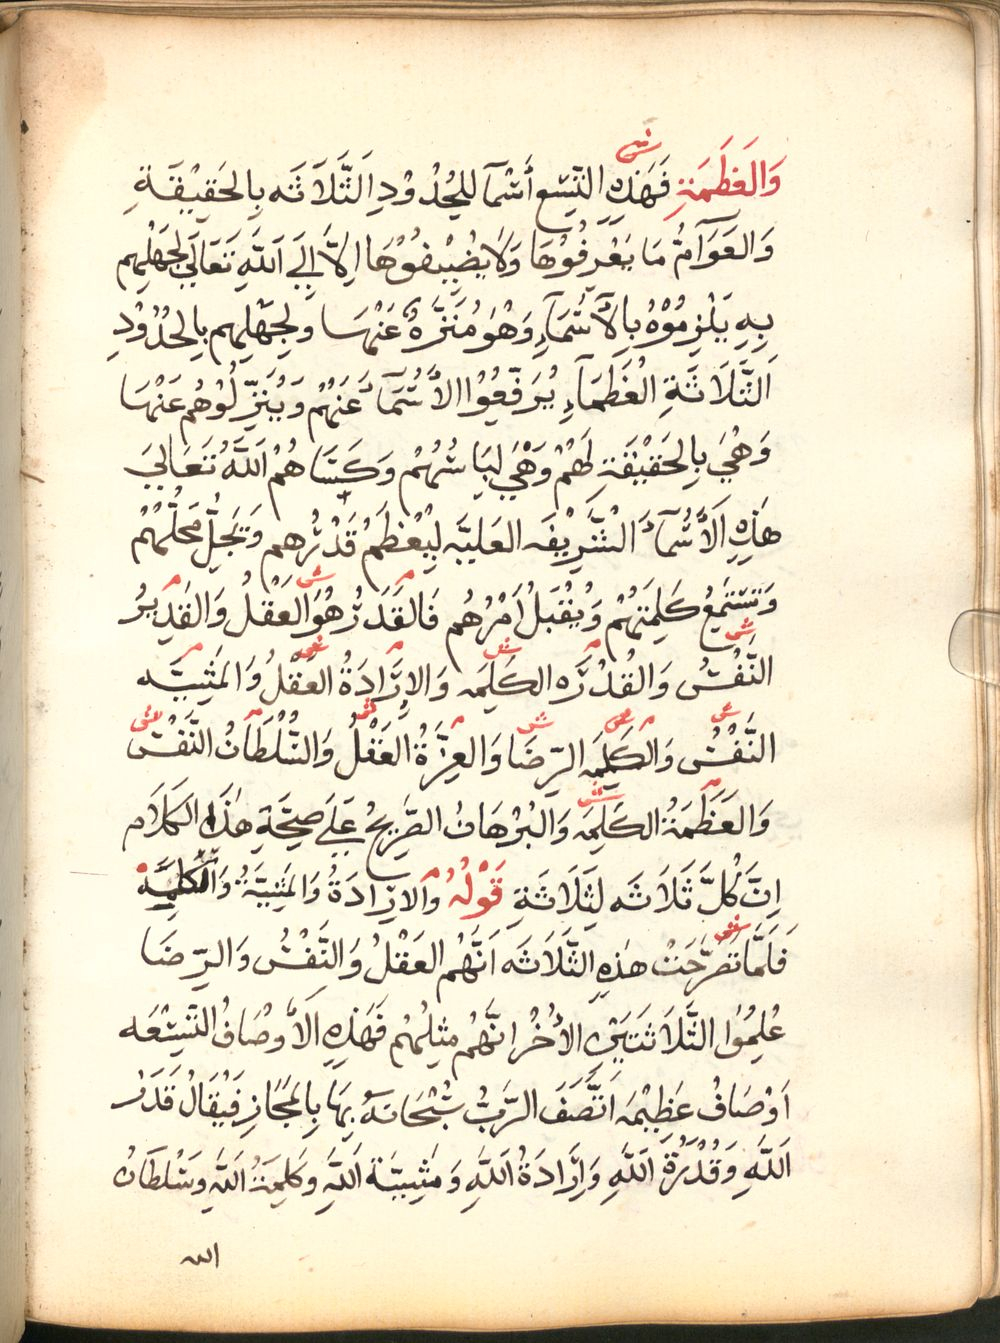 وَالعَظَمَةِ فَهَذِهِ التِّسْع أَسْمَآ للحُدُوْدِ الثَّلَاثَه بِالحَقِيْقَةِ
وَالعَوَآمُّ مَا يَعْرِفُوْهَا وَلَا يُضِيْفُوْهَا اِلَّا إِلَى اللَّهِ تَعَالَى لجَهْلِهِم
بِهِ يَلْزِمُوْهُ بِالأَسْمَآءِ وَهُوَ مُنَزَّهٌ عَنْهَا ولِجَهْلِهِم بِالحُدُوْدِ
الثَّلَاثَةِ العُظَمَآءِ يُرَفِّعُوْا الأَسْمَآءَ عَنْهُمْ وَيُنَزِّلُوْهُم عَنْهَا
وَهْيَ بِالحَقِيْقَةِ لَهُمْ وَهْيَ لِبَاسُهُمْ وَكَسَاهُمْ اللَّهُ تَعَالَى
هَذِهِ الأَسْمَآءَ الشَّرِيْفَه العَلِيَّه لِيُعْظَمْ قَدْرُهم وَتَجِلُّ مَحَلُّهُمْ
وَتُسْتَمِعُ كَلِمَتِهُمْ وَيُقْبَلُ اَمْرُهُم فَالقَدَرُ هُوَ العَقْلُ وَالقَدِيْرُ
النَّفْسُ وَالقُدْرَه الكَلِمَه وَالاِرَادَةُ العَقْلُ وَالمَشِيَّه
النَّفْسُ وَالكَلِمَه الرِّضَا وَالعِزَّةُ العَقْلُ وَالسُّلْطَانُ النَّفْسُ
وَالعَظَمَةُ الكَلِمَه وَالبُرْهَانُ الصَّرِيْحُ عَلَى صِحَّةِ هَذَا الكَلَام
اِنَّ كُلَّ ثَلَاثَه لِثَلَاثَةِ قَوْلُهُ وَالاِرَادَةُ وَالمَشِيَّةُ وَالكَلِمَةُ
فَلَمَّا تَصَرَّحَتْ هَذِهِ الثَّلَاثَه اَنَّهُم العَقْلُ وَالنَّفْسُ وَالرِّضَا
عُلِمُوْا الثَّلَاثَتَيْنِ الأُخْرُ اِنَّهُم مِثْلِهُمْ فَهَذِهِ الأَوْصَافُ التِّسْعَه
اَوْصَافُ عَظِيْمَه اتَّصَفَ الرَّبُّ سُبْحَانَهُ بِهَا بِالمَجَازِ فَيْقَالُ قَدَرُ
اللَّهِ وَقُدْرَةُ اللَّهِ وَاِرَادَةُ اللَّهِ وَمَشِيَّةُ اللَّهِ وَكَلِمَةُ اللَّهِ وَسُلْطَانُ
الله